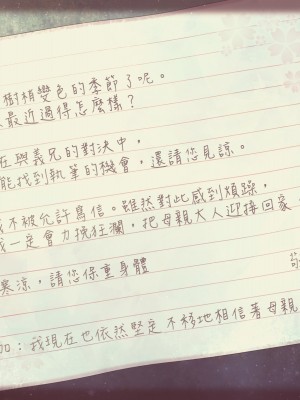 樹梢變色的季節了呢。
最近過得怎麼樣？
在與義兄的對決中，
能找到執筆的機會，還請您見諒。
不被允許寫信。雖然對此感到煩躁，
我一定會力挽狂瀾，把母親大人迎接回家。
寒涼，請您保重身體
加：我現在也依然堅定不移地相信著母親